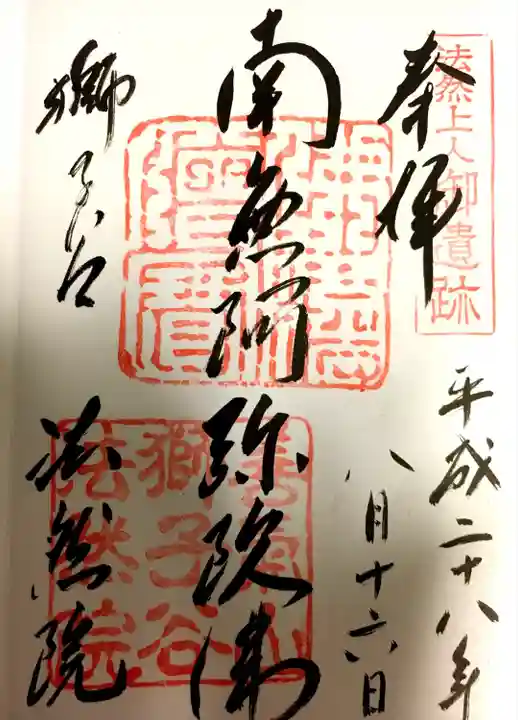 法然上人御遺跡
奉拝
平成二十八年
八月十六日
南無阿弥陀佛
獅子谷
法然院
獅子谷
法然院